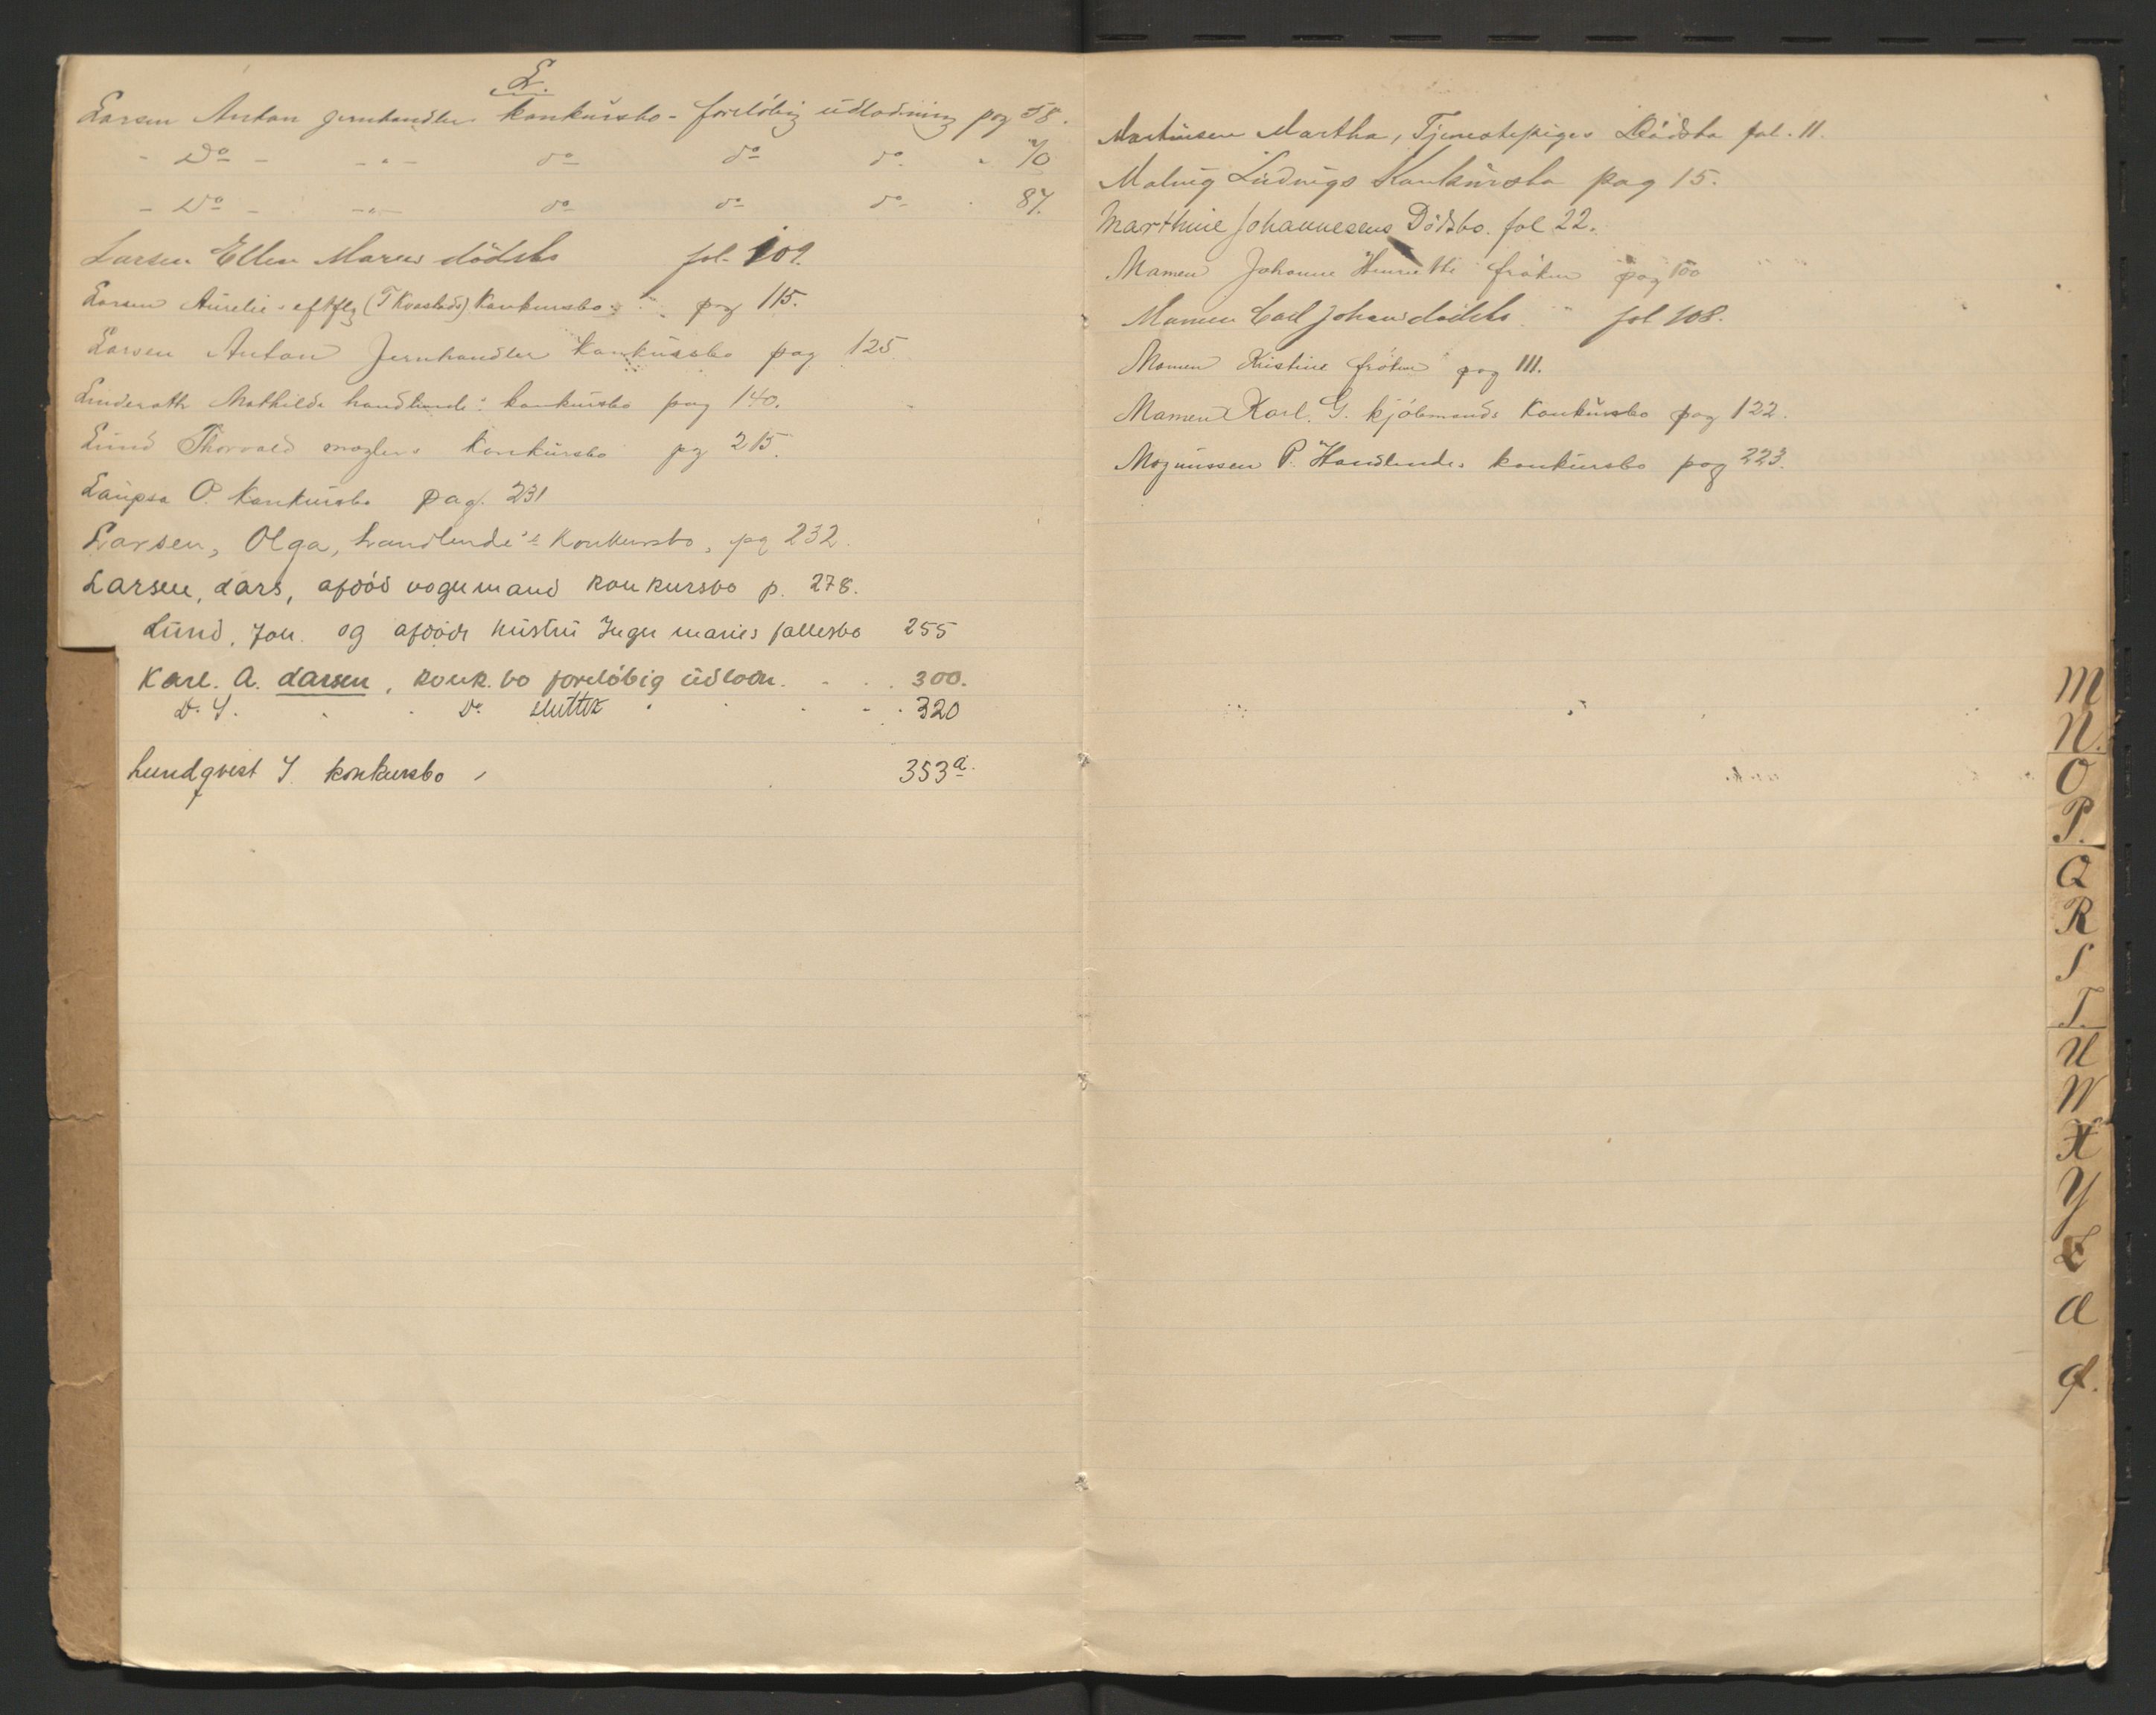 L.
Larsen Anton jernhandler konkürsbo - foreløbig üdlodning pag 58.
- Do - - " - do do do. " 70
- Do - - " - do do do - 87.
Larsen Ellen Maries dödsbo fol. 109.
Larsen Aürelie's eftflg (T Kvastads) Konkursbo. pag 115.
Larsen Anton Jernhandler konkürsbo pag 125
Linderoth Mathilde handlende's konkürsbo pag 140.
Lünd Thorvald mæglers konkürsbo pg 215.
Laüpsa O. Konkürsbo pag. 231
Larsen, Olga, handlende's Konkursbo, pg 232.
Larsen, Lars, afdød vognmand konkursbo p. 278.
Lünd, Joh. og afdøde hüstrü Inger Maries fællesbo 255
Karl. A. Larsen, konk. bo foreløbig üdlodn. - . . 300.
D. S. Do slüttet . . . - . 320
Lundqvist J. konkursbo 353a.
Martinsen Martha, Tjenestepiges Dødsbo fol. 11.
Malvig Lüdvigs Konkürsbo pag 15.
Marthine Johannesens Dödsbo. fol 22.
Mamen Johanne Henriette frøken pag 100
Mamen Carl Johans dödsbo fol 108.
Mamen Kristine frøken pag 111.
Mamen Karl. G. kjøbmands Konkürsbo pag 122.
Magnüssen P. Handlendes konkürsbo pag 223.
M
N.
O
P.
Q
R
S
T.
U
W
X
Y
Z
Æ
Ø.